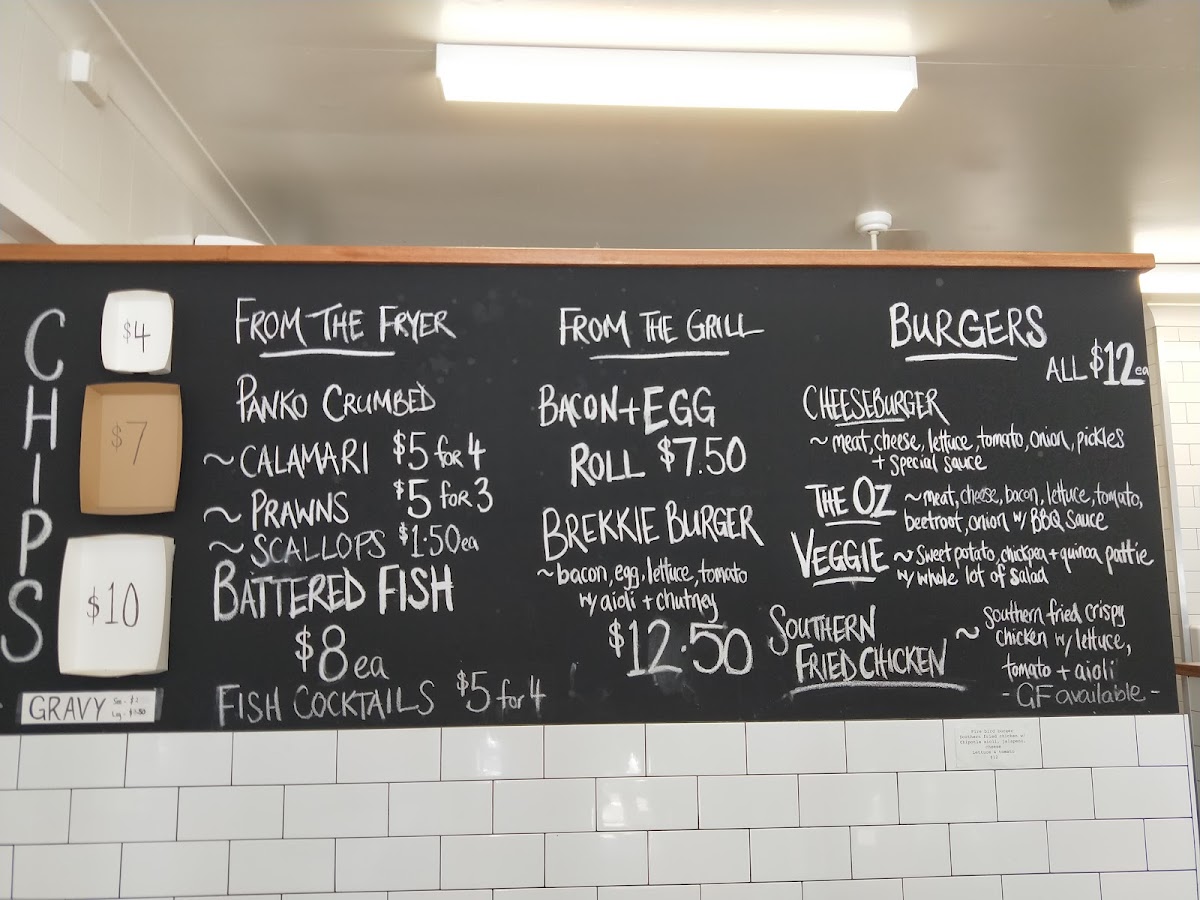 CHIPS
$4
$7
$10
GRAVY
FROM THE FRYER
PANKO CRUMBED
~ CALAMARI $5 for 4
~ PRAWNS $5 for 3
~ SCALLOPS $1.50ea
BATTERED FISH
$8 ea
FISH COCKTAILS $5 for 4
FROM THE GRILL
BACON + EGG
ROLL $7.50
BREKKIE BURGER
~ bacon, egg, lettuce, tomato
w/ aioli + chutney
$12.50
BURGERS
ALL $12 ea
CHEESEBURGER
~ meat, cheese, lettuce, tomato, onion, pickles
+ special sauce
THE OZ ~ meat, cheese, bacon, lettuce, tomato,
beetroot, onion w/ BBQ sauce
VEGGIE ~ Sweet potato, chickpea + quinoa pattie
w/ whole lot of salad
SOUTHERN
FRIED CHICKEN ~ Southern fried crispy
chicken w/ lettuce,
tomato + aioli
- GF available -